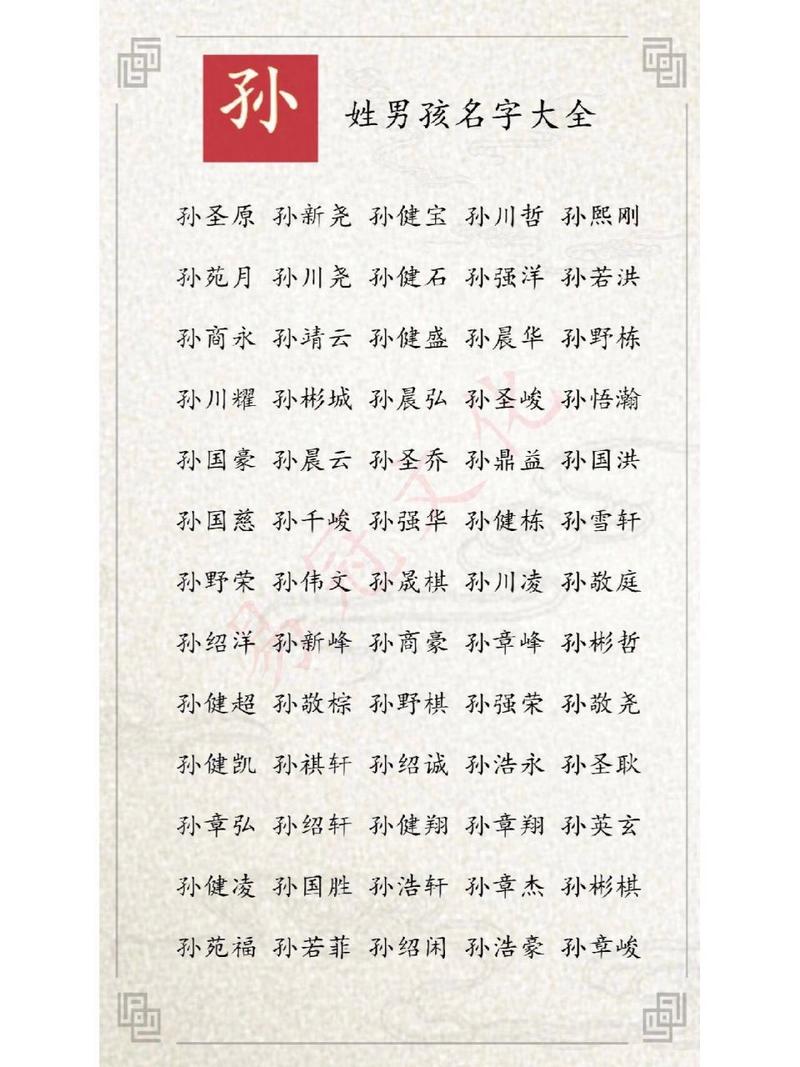 孙 姓男孩名字大全
孙圣原 孙新尧 孙健宝 孙川哲 孙熙刚
孙苑月 孙川尧 孙健石 孙强洋 孙若洪
孙商永 孙靖云 孙健盛 孙晨华 孙野栋
孙川耀 孙彬城 孙晨弘 孙圣峻 孙悟瀚
孙国豪 孙晨云 孙圣乔 孙鼎益 孙国洪
孙国慈 孙千峻 孙强华 孙健栋 孙雪轩
孙野荣 孙伟文 孙晟棋 孙川凌 孙敬庭
孙绍洋 孙新峰 孙商豪 孙章峰 孙彬哲
孙健超 孙敬棕 孙野棋 孙强荣 孙敬尧
孙健凯 孙祺轩 孙绍诚 孙浩永 孙圣耿
孙章弘 孙绍轩 孙健翔 孙章翔 孙英玄
孙健凌 孙国胜 孙浩轩 孙章杰 孙彬棋
孙苑福 孙若菲 孙绍闲 孙浩豪 孙章峻